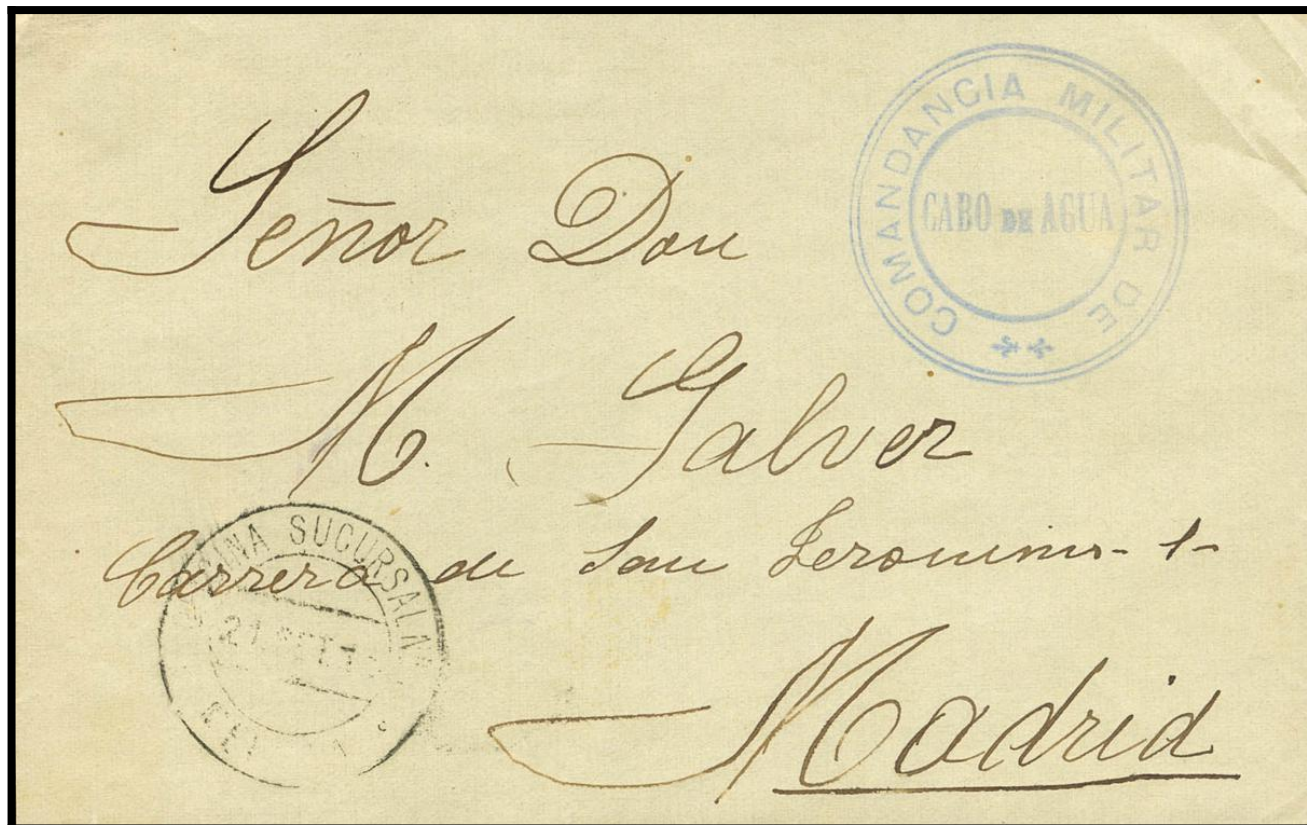 COMANDANCIA MILITAR DE
CABO DE AGUA
Señor Don
M. Galvez
Carrera de San Jeronimo - 1 -
Madrid
SUCURSAL
21